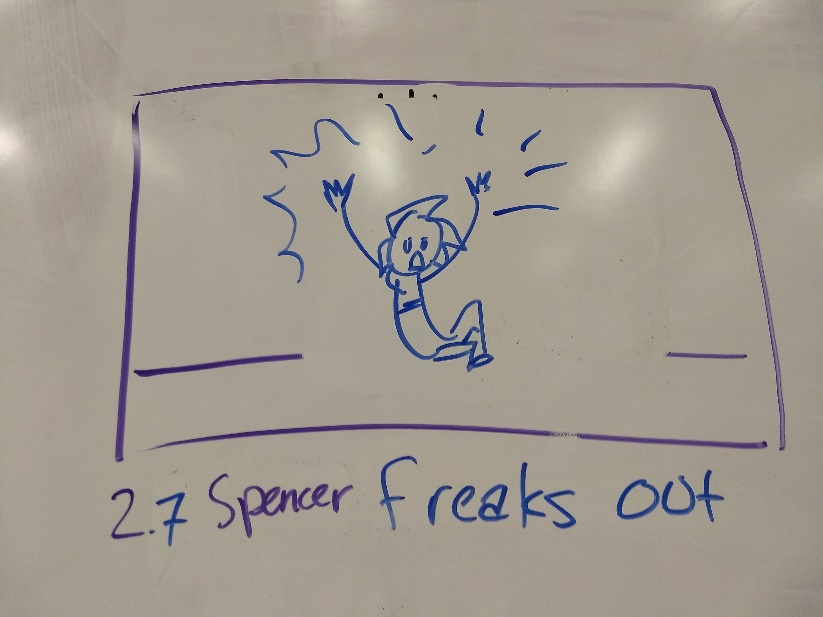 2.7 Spencer freaks out